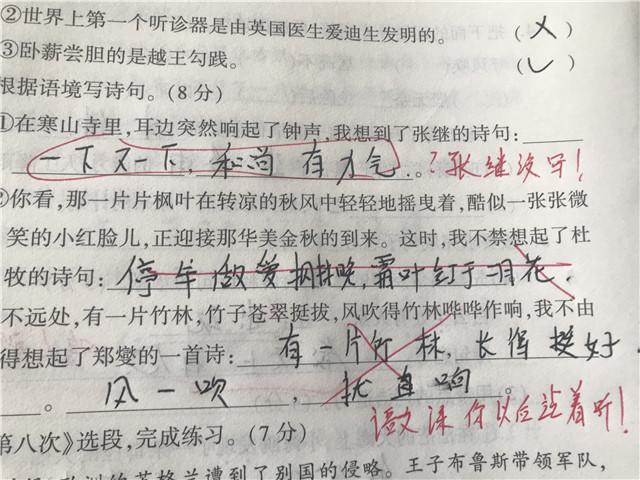 ②世界上第一个听诊器是由英国医生爱迪生发明的。 (×)
③卧薪尝胆的是越王勾践。 (✓)
根据语境写诗句。(8 分)
①在寒山寺里,耳边突然响起了钟声,我想到了张继的诗句:
一下又一下,和尚有力气。张继没写!
②你看,那一片片枫叶在转凉的秋风中轻轻地摇曳着,酷似一张张微
笑的小红脸儿,正迎接那华美金秋的到来。这时,我不禁想起了杜
牧的诗句:停车做爱枫林晚,霜叶红于二月花.
不远处,有一片竹林,竹子苍翠挺拔,风吹得竹林哗哗作响,我不由
得想起了郑燮的一首诗:有一片竹林,长得挺好
。风一吹,直响。
语文课你以后站着听!
第八次》选段,完成练习。(7 分)
苏格兰遭到了别国的侵略。王子布鲁斯带领军队,